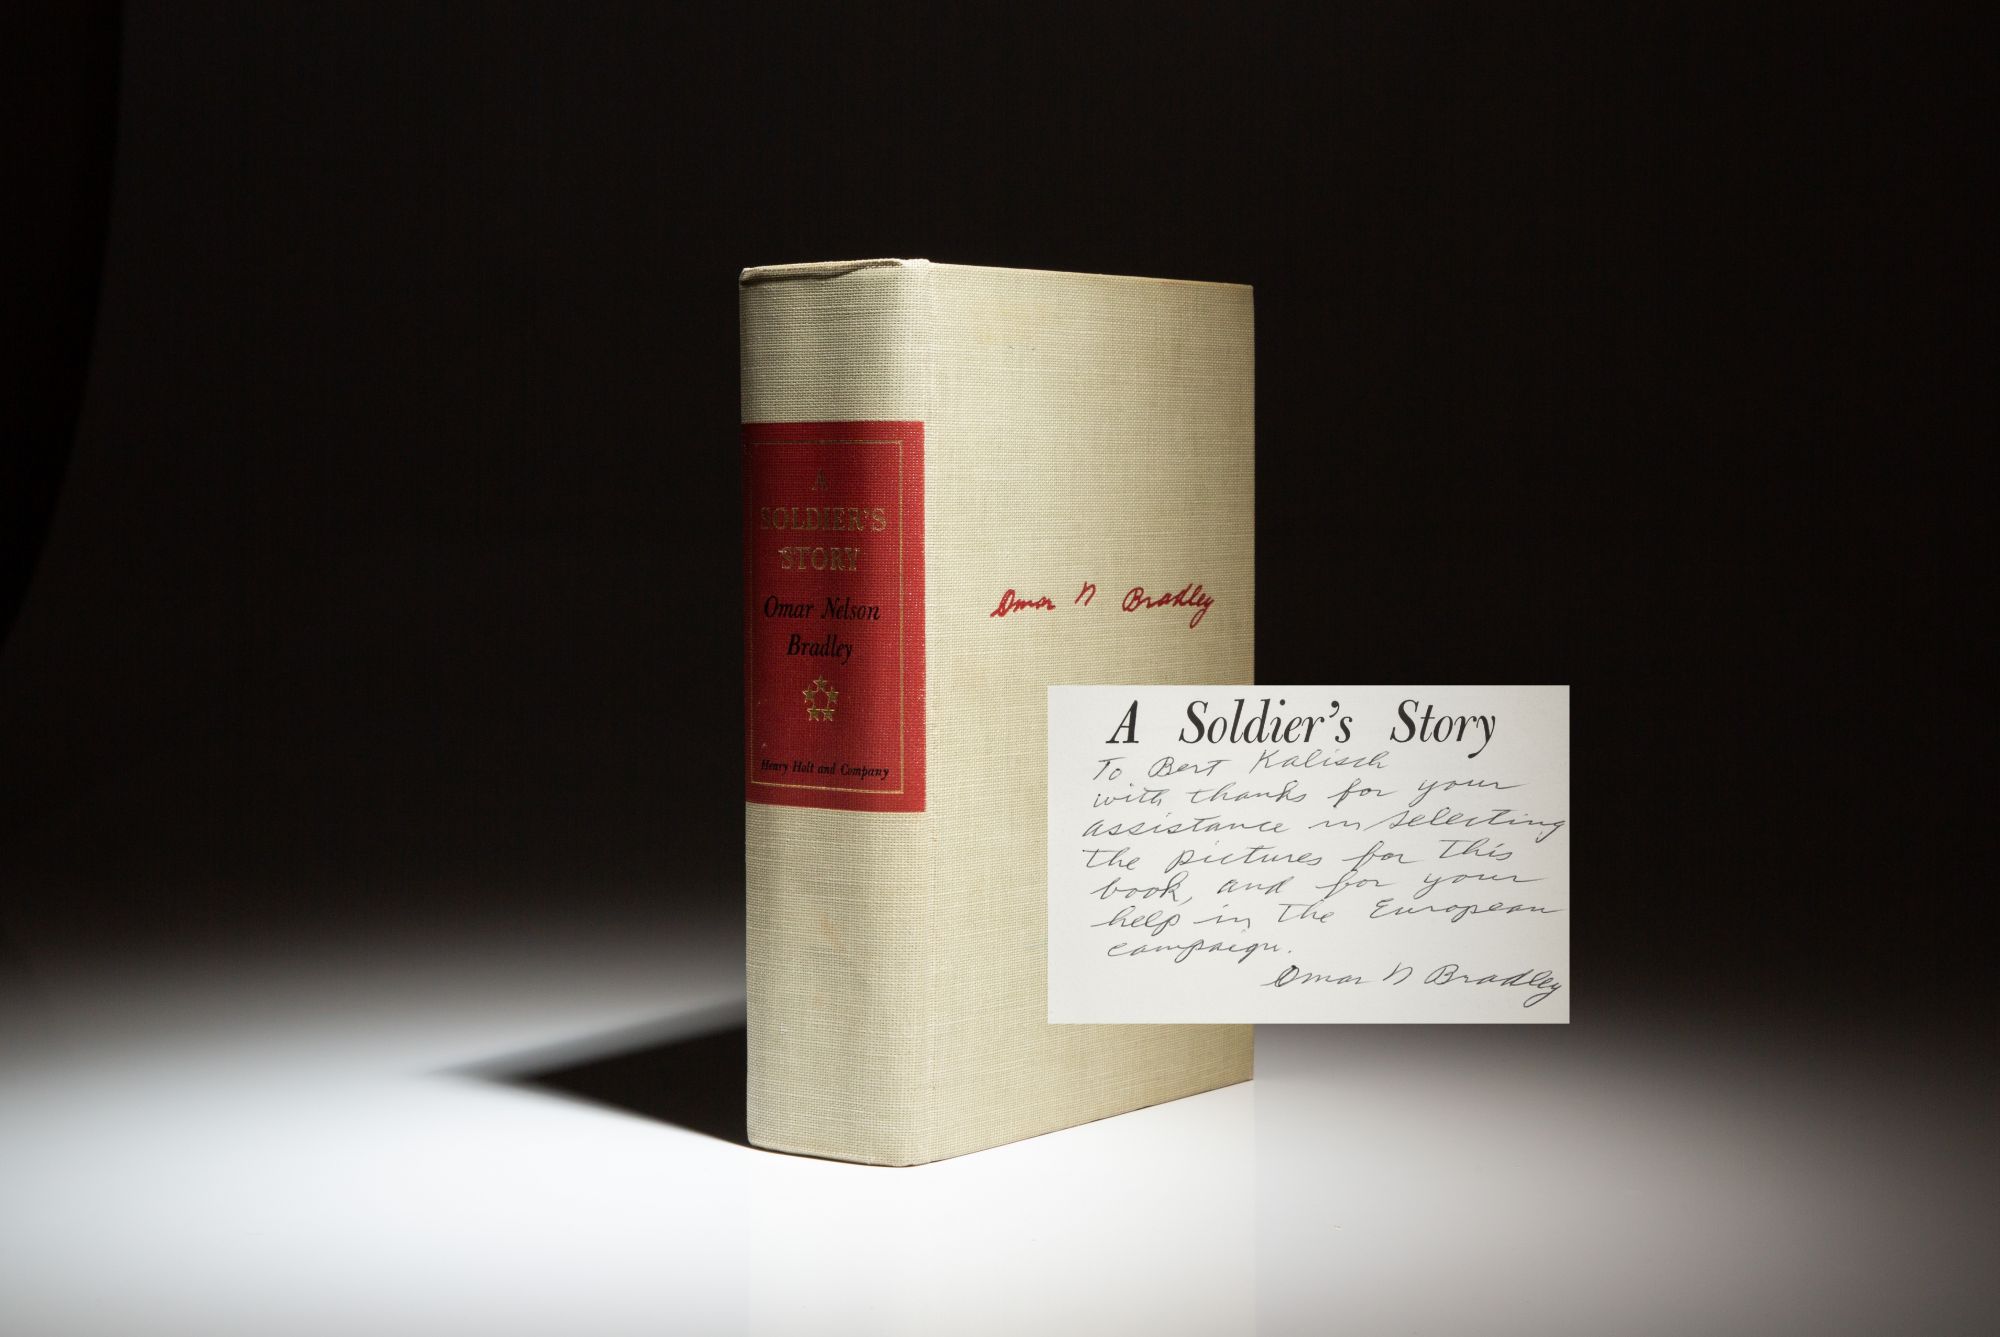 A
SOLDIER'S
STORY
Omar Nelson
Bradley
Henry Holt and Company
Omar N Bradley
A Soldier's Story
To Bert Kalisch
with thanks for your
assistance in selecting
the pictures for this
book, and for your
help in the European
campaign.
Omar N Bradley